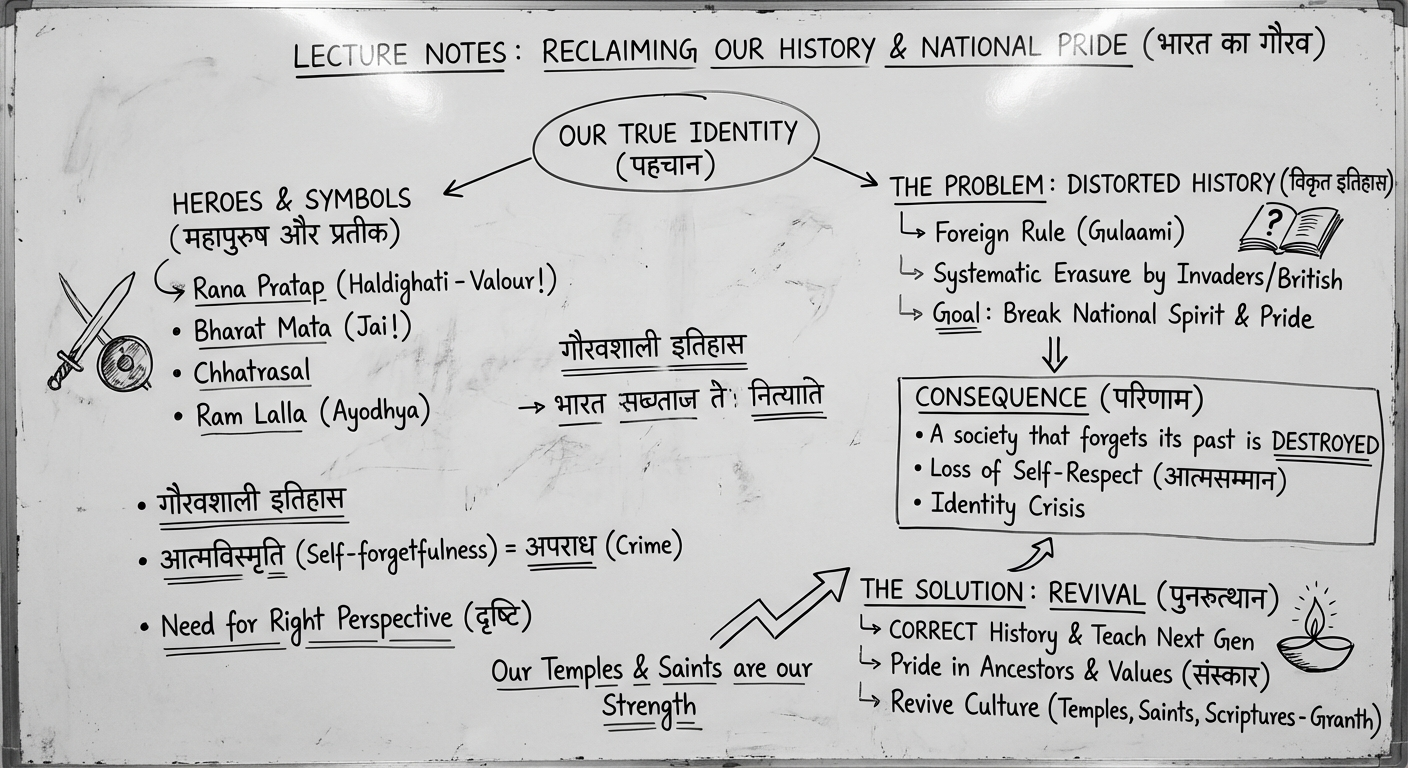 LECTURE NOTES: RECLAIMING OUR HISTORY & NATIONAL PRIDE (भारत का गौरव)
OUR TRUE IDENTITY
(पहचान)
HEROES & SYMBOLS
(महापुरुष और प्रतीक)
↳ Rana Pratap (Haldighati - Valour!)
• Bharat Mata (Jai!)
• Chhatrasal
• Ram Lalla (Ayodhya)
गौरवशाली इतिहास
→ भारत
• गौरवशाली इतिहास
• आत्मविस्मृति (Self-forgetfulness) = अपराध (Crime)
• Need for Right Perspective (दृष्टि)
Our Temples & Saints are our
Strength
THE PROBLEM: DISTORTED HISTORY (विकृत इतिहास)
?
↳ Foreign Rule (Gulaami)
↳ Systematic Erasure by Invaders/British
↳ Goal: Break National Spirit & Pride
CONSEQUENCE (परिणाम)
• A society that forgets its past is DESTROYED
• Loss of Self-Respect (आत्मसम्मान)
• Identity Crisis
THE SOLUTION: REVIVAL (पुनरुत्थान)
↳ CORRECT History & Teach Next Gen
↳ Pride in Ancestors & Values (संस्कार)
↳ Revive Culture (Temples, Saints, Scriptures - Granth)